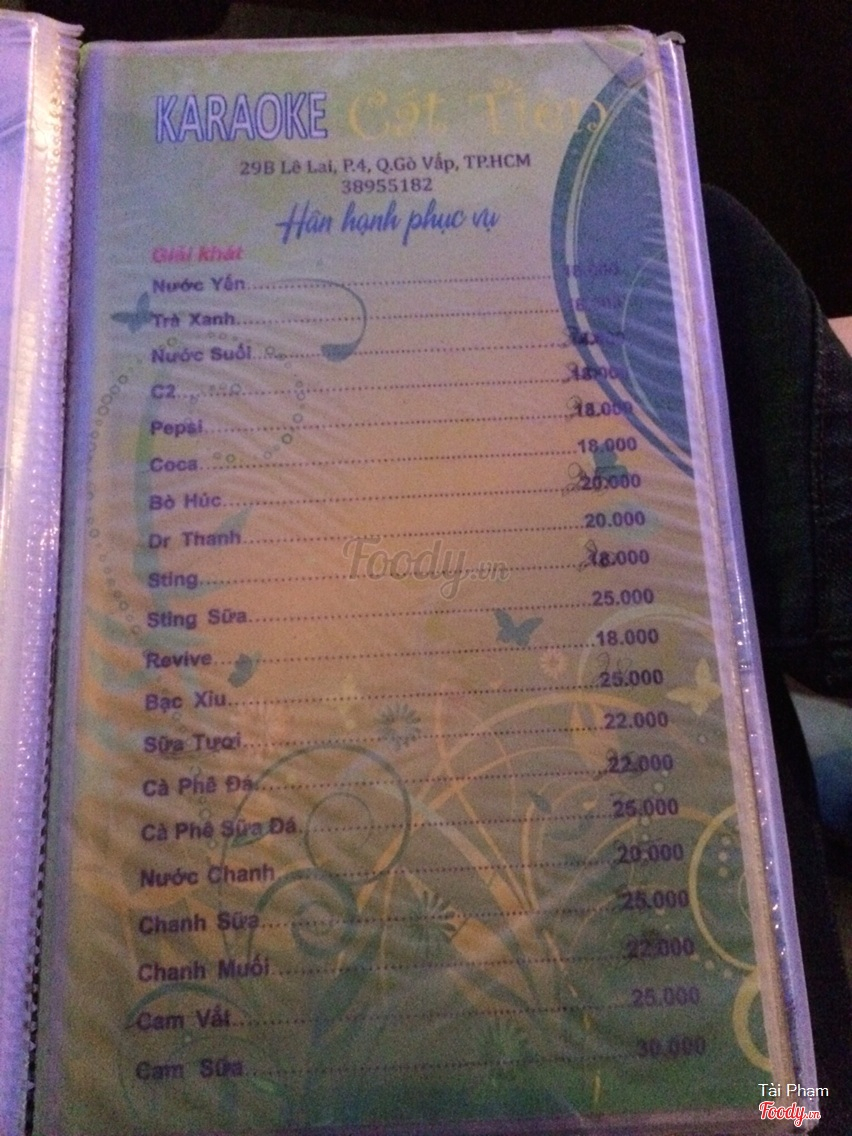 KARAOKE Cát Tiên
29B Lê Lai, P.4, Q.Gò Vấp, TP.HCM
38955182
Hân hạnh phục vụ
Giải khát
Nước Yến 18.000
Trà Xanh 18.000
Nước Suối
C2 18.000
Pepsi 18.000
Coca 18.000
Bò Húc 20.000
Dr Thanh 20.000
Sting 18.000
Sting Sữa 25.000
Revive 18.000
Bạc Xỉu 25.000
Sữa Tươi 22.000
Cà Phê Đá 22.000
Cà Phê Sữa Đá 25.000
Nước Chanh 20.000
Chanh Sữa 25.000
Chanh Muối 22.000
Cam Vắt 25.000
Cam Sữa 30.000
Foody.vn
Tài Phạm
Foody.vn